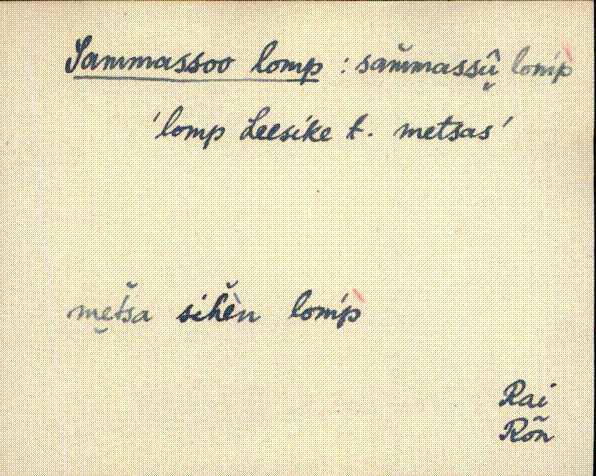 Sammassoo lomp : sam̆massū̬̂ lom̀p
'lomp Leesike t. metsas'
me̬t̆sa sih̆èn lom̀p
Rai
Rõn